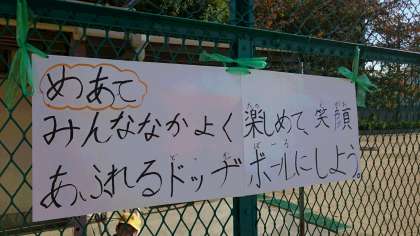 めあて
みんななかよく楽しめて、笑顔
あふれるドッヂボールにしよう。